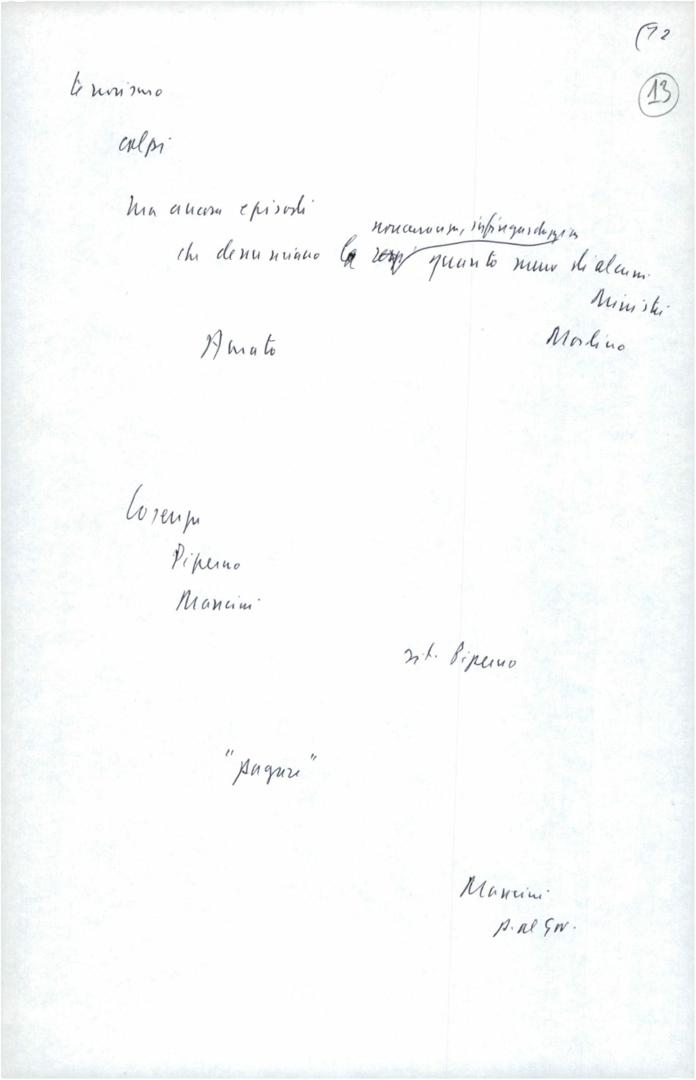 (72
13
terrorismo
colpi
Ma ancora episodi
noncuranza, infingardaggine
che denunciano la quanto meno di alcuni
Ministri
Amato
Morlino
Cosenza
Piperno
Mancini
Piperno
"pagare"
Mancini
p. al Gov.